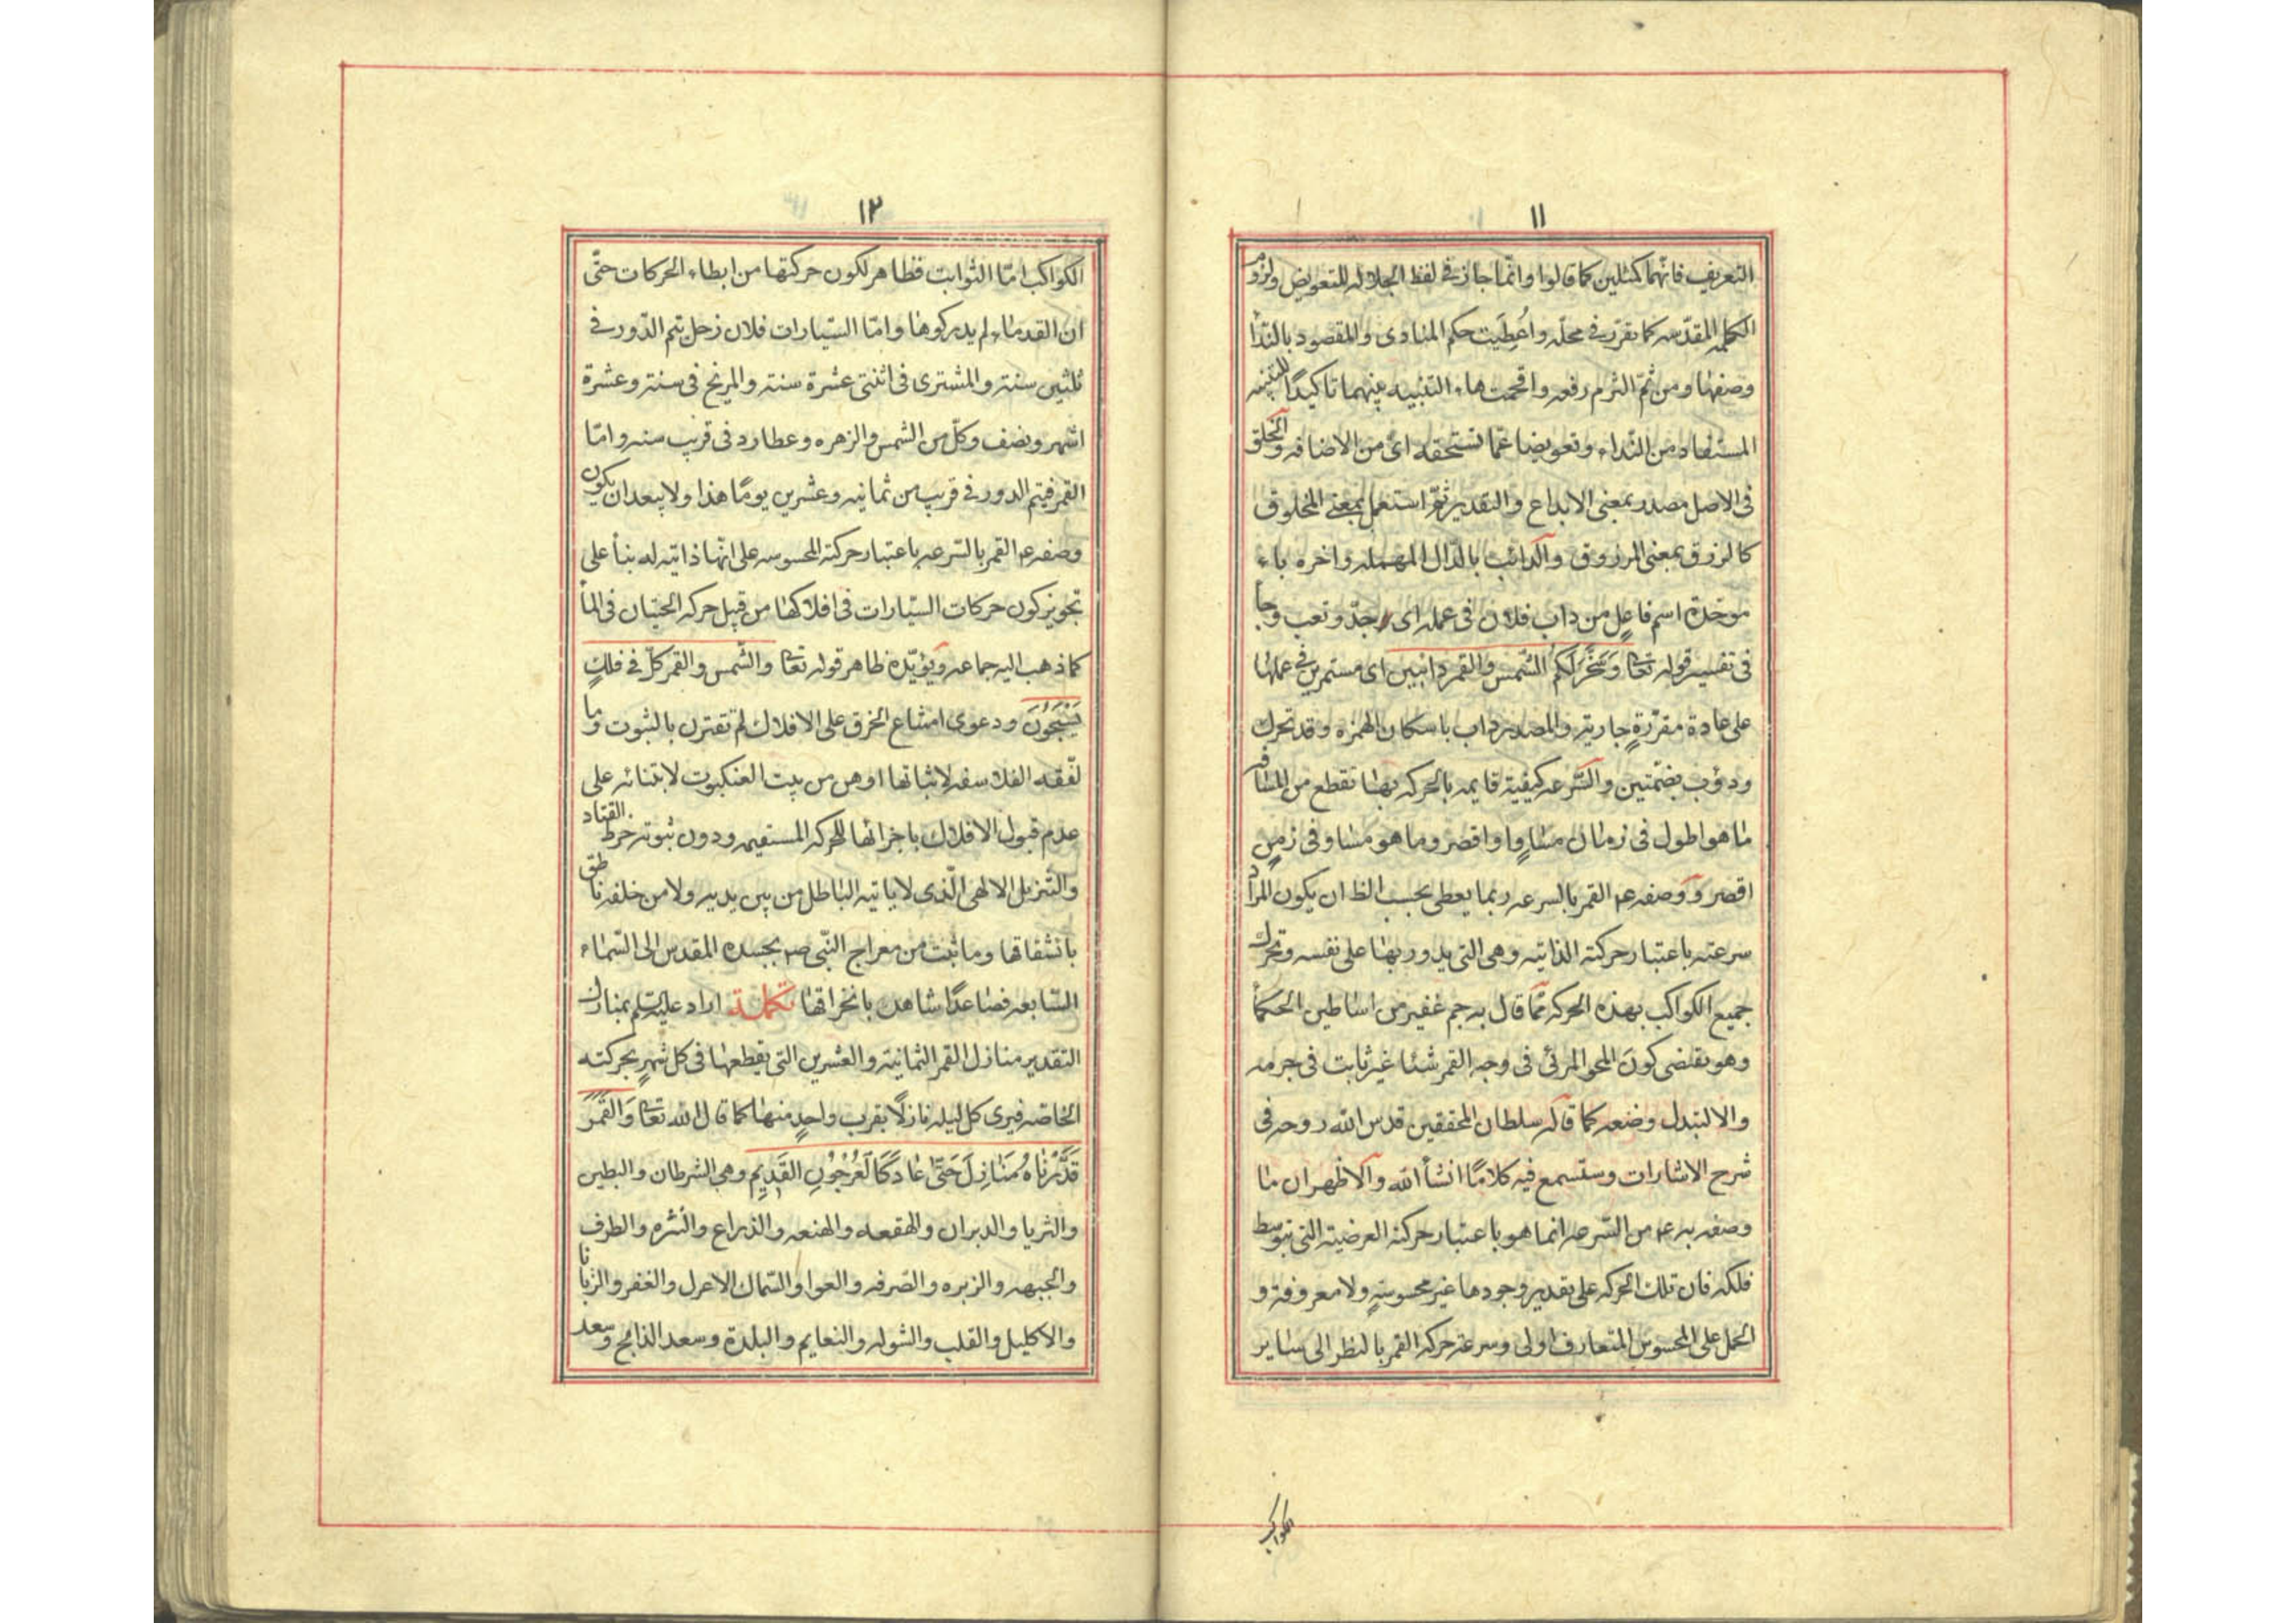 ١١
التعريف فانهما كمثلين كما قالوا وانّما جاز فى لفظ الجلاله للتعويض ولزوم
الكلمه المقدّسه كما تقرّر فى محلّه واُعطِيَت حكم المنادى والمقصود بالنّدأ
وصفها ومن ثمّ التزم رفعه واقحمت هاء التنبيه بينهما تاكيدًا للتنبيه
المستفاد من النّداء وتعويضا عمّا تستحقه اى من الاضافه والخلق
فى الاصل مصدر بمعنى الابداع والتقدير ثمّ استعمل بمعنى المخلوق
كالرزق بمعنى المرزوق والدائب بالدّال المهمله واخره باء
موحّدة اسم فاعل من داب فلان فى عمله اى جدّ وتعب وجأ
فى تفسير قوله تعا وَسَخَّرَ لَكُم الشّمس والقمر دائبين اى مستمرين فى عملها
على عادة مقرّرةٍ جارية والمصدر داب باسكان الهمزه وقد تحرك
ودؤب بضمّتين والسّرعه كيفية قايمه بالحركه بها تقطع من المسافه
ما هو اطول فى زمان مساوٍ او اقصر وما هو مساو فى زمنٍ
اقصر ووصفه ع القمر بالسرعه ربما يعطى بحسب الظ ان يكون المراد
سرعته باعتبار حركته الذاتيه وهى التى يدور بها على نفسه وتحرك
جميع الكواكب بهذه الحركه ممّا قال به جم غفير من اساطين الحكمأ
وهو يقتضى كونَ المحو المرئى فى وجه القمر شئا غير ثابت فى جرمه
والا لتبدل وضعه كما قاله سلطان المحققين قدس الله روحه فى
شرح الاشارات وستسمع فيه كلامًا انشأ الله والاظهر ان ما
وصفه به ع من السّرعه انما هو باعتبار حركته العرضية التى بتوسط
فلكه فان تلك الحركه على تقدير وجودها غير محسوسةٍ ولا معروفة و
الحمل على المحسوس المتعارف اولى وسرعة حركه القمر بالنظر الى ساير
الكواكب
١٢
الكواكب امّا الثوابت فظاهر لكون حركتها من ابطاء الحركات حتّى
ان القدماء لم يدركوها وامّا السّيارات فلان زحل يتم الدّور فى
ثلثين سنة والمشترى فى اثنتى عشرة سنة والمريخ فى سنة وعشرة
اشهر ونصف وكلّ من الشمس والزهره وعطارد فى قريب سنه وامّا
القمر فيتم الدور فى قريب من ثمانيه وعشرين يومًا هذا ولا يبعد ان يكون
وصفه ع القمر بالسّرعه باعتبار حركته المحسوسه على انّها ذاتيه له بنأ على
تجويز كون حركات السّيارات فى افلاكها من قبل حركه الحيتان فى المأ
كما ذهب اليه جماعه ويؤيّده ظاهر قوله تعا والشّمس والقمر كلّ فى فلكٍ
يَسْبَحُونَ ودعوى امتناع الخرق على الافلاك لم تقترن بالثبوت وما
لفّقه الفلاسفه لاثباتها اوهن من بيت العنكبوت لابتنائه على
عدم قبول الافلاك باجزائها للحركه المستقيمه ودون ثبوته خرط القتاد
والتّنزيل الالهى الّذى لا ياتيه الباطل من بين يديه ولا من خلفه ناطق
بانشقاقها وما ثبت من معراج النّبى ص بجسده المقدس الى السّماء
السّابعه فصاعدًا شاهد بانخراقها تكملة اراد عليه السلم بمنازل
التقدير منازل القمر الثمانية والعشرين التى يقطعها فى كل شهرٍ بحركته
الخاصّه فيرى كل ليله نازلًا بقرب واحدٍ منها كما قال الله تعا وَالقَمَرَ
قَدَّرْنَاهُ مَنَازِلَ حَتّىٰ عَادَ كَالعُرْجُونِ القَدِيمِ وهى الشرطان والبطين
والثريا والدبران والهقعه والهنعه والذراع والنثره والطرف
والجبهه والزبره والصّرفه والعوا والسّماك الاعزل والغفر والزبانا
والاكليل والقلب والشوله والنعايم والبلدة وسعد الذابح وسعد